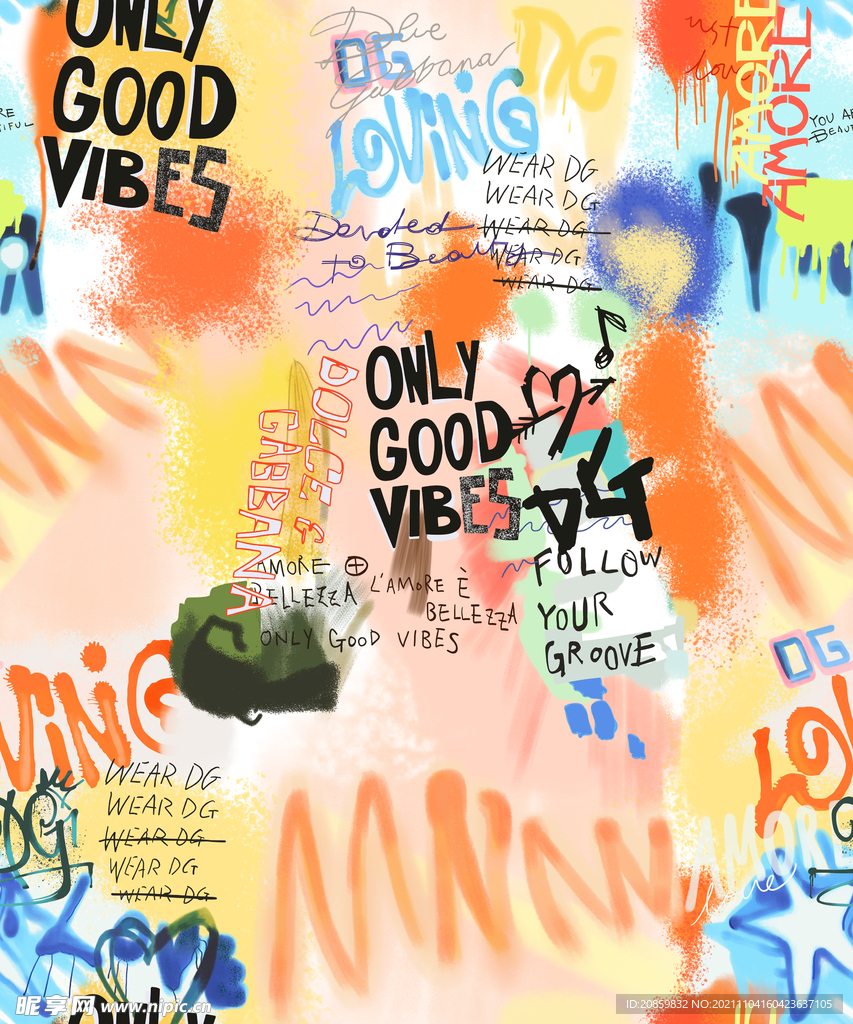 ONLY
GOOD
VIBES
Dolce
Gabbana
DG
LOVING
DG
ust
love
AMORE
AMORE
YOU ARE
BEAUTIFUL
WEAR DG
WEAR DG
WEAR DG
WEAR DG
WEAR DG
Devoted
to Beauty
ONLY
GOOD
VIBES
DOLCE &
GABBANA
DG
FOLLOW
YOUR
GROOVE
AMORE
BELLEZZA
L'AMORE È
BELLEZZA
ONLY GOOD VIBES
VING
DG
LO
WEAR DG
WEAR DG
WEAR DG
WEAR DG
WEAR DG
DG
AMOR
ONLY
昵享网 www.nipic.cn
ID:20859832 NO:20211104160423637105